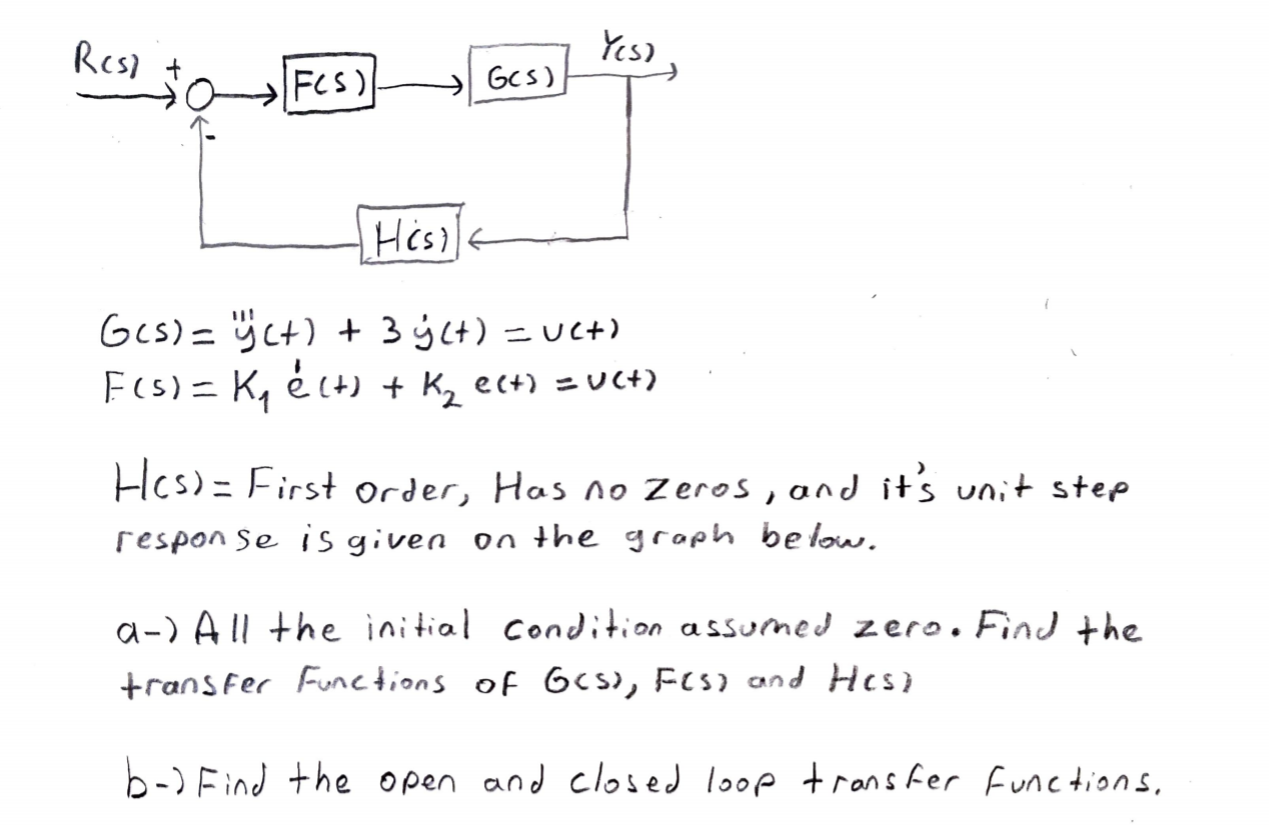 R(s) +
F(s)
G(s)
Y(s)
-
H(s)
G(s) = y'''(t) + 3 ẏ(t) = u(t)
F(s) = K₁ ė(t) + K₂ e(t) = u(t)
H(s) = First order, Has no zeros, and it's unit step
response is given on the graph below.
a-) All the initial condition assumed zero. Find the
transfer functions of G(s), F(s) and H(s)
b-) Find the open and closed loop transfer functions.